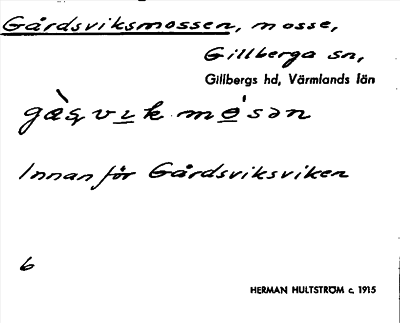 Gårdsviksmossen, mosse,
Gillberga sn,
Gillbergs hd, Värmlands län
gàʂvɪk mósən
Innanför Gårdsviksviken
6
HERMAN HULTSTRÖM c. 1915